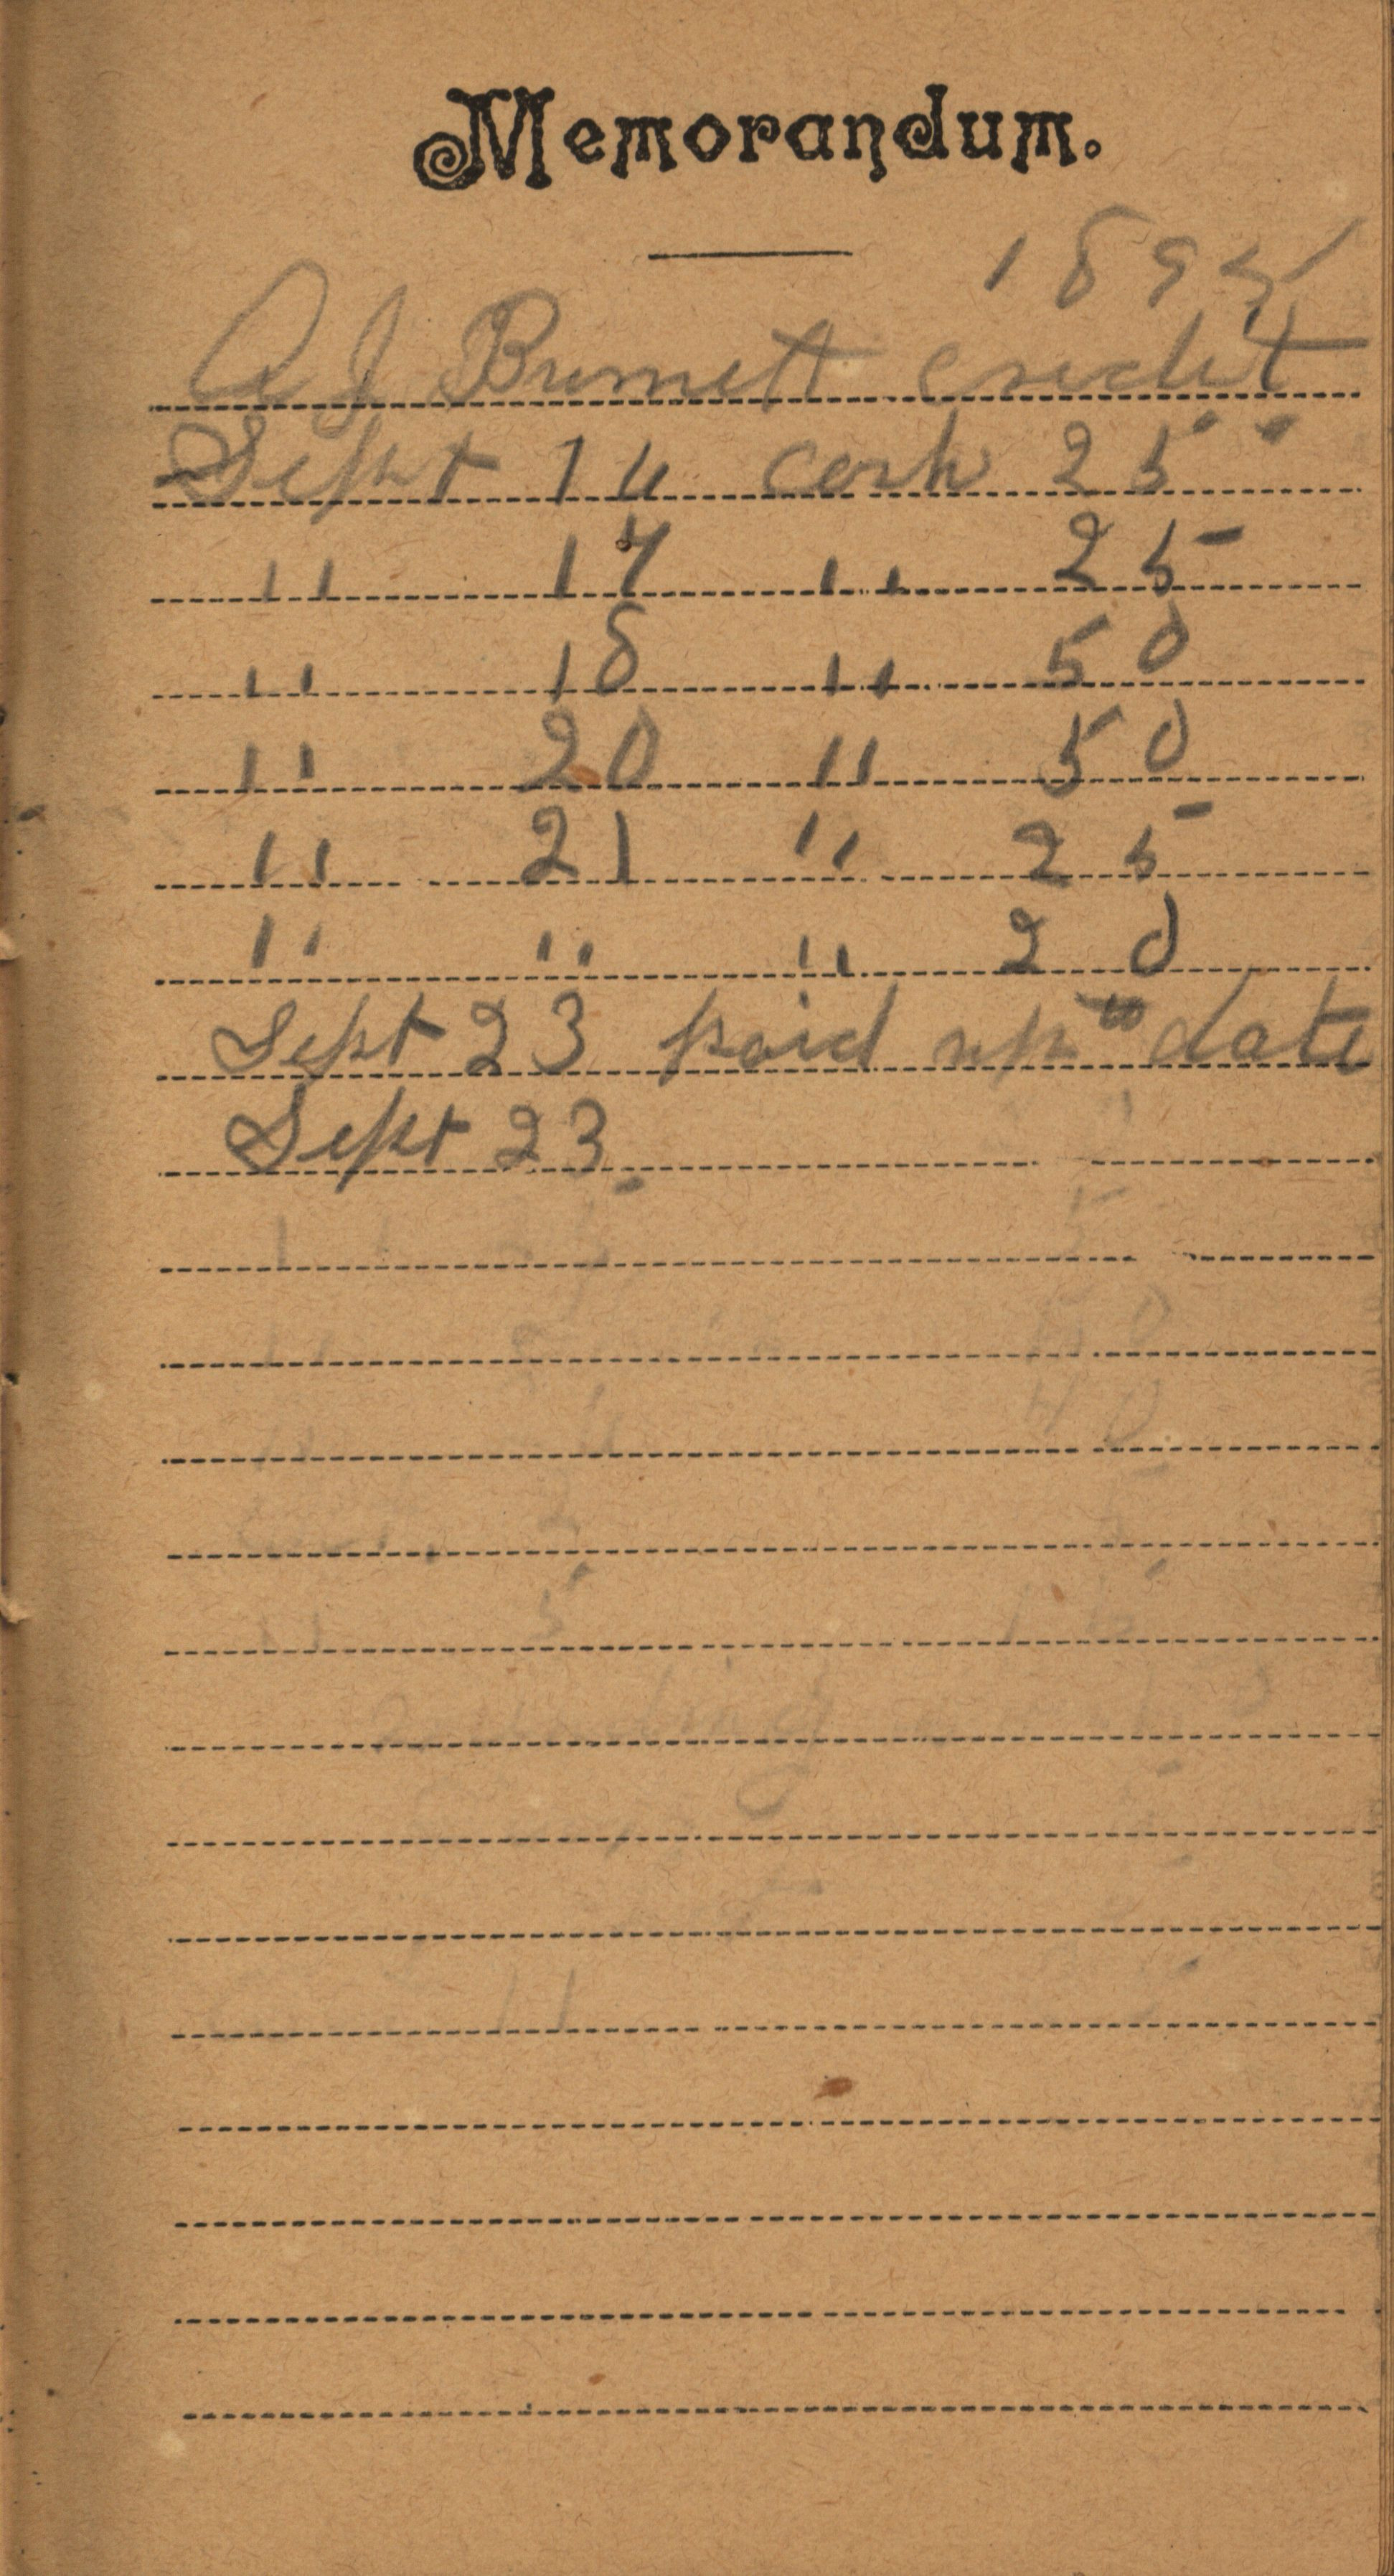 Memorandum.
1895
A J Burnett credit
Sept 14 cash 25
" 17 " 25
" 18 " 50
" 20 " 50
" 21 " 25
" " " 20
Sept 23 paid up to date
Sept 23